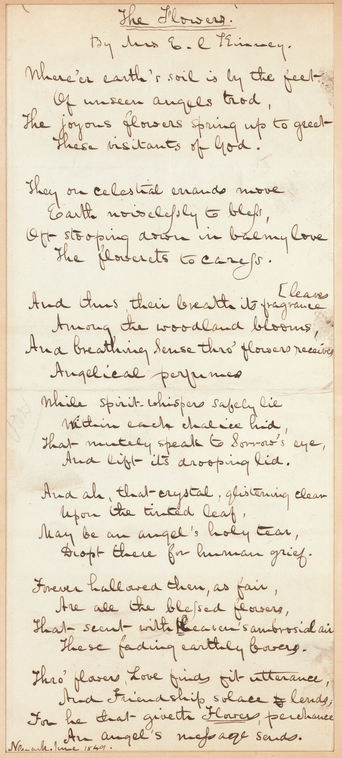 The Flowers.
By Mrs E. C Kinney.
Where'er earth's soil is by the feet
Of unseen angels trod,
The joyous flowers spring up to greet
These visitants of God.
They on celestial errands move
Earth noiselessly to bless,
Oft stooping down in balmy love
The flowerets to caress.
[leaves
And thus their breath its fragrance
Among the woodland blooms,
And breathing sense thro' flowers receives
Angelical perfumes
While spirit-whispers safely lie
Within each chalice hid,
That mutely speak to Sorrow's eye,
And lift its drooping lid.
And ah, that crystal, glistening clear
Upon the tinted leaf,
May be an angel's holy tear,
Dropt there for human grief.
Forever hallowed then, as fair,
Are all the blessed flowers,
That scent with heaven's ambrosial air
These fading earthly bowers.
Thro' flowers Love finds fit utterance,
And Friendship solace lends,
For he that giveth Flowers, perchance
An angel's message sends.
Newark. June 1849.